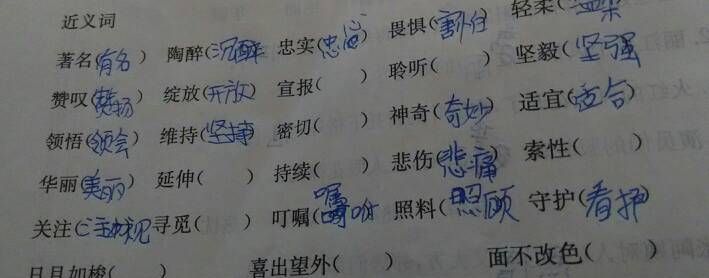 近义词
著名(有名) 陶醉(沉醉) 忠实(忠心) 畏惧(害怕) 轻柔(
赞叹(赞扬) 绽放(开放) 宣报( ) 聆听( ) 坚毅(坚强
领悟(领会) 维持(坚持) 密切( ) 神奇(奇妙) 适宜(适合)
华丽(美丽) 延伸( ) 持续( ) 悲伤(悲痛 索性( )
关注( 寻觅( ) 叮嘱( 照料(照顾 守护(看护
日月如梭( ) 喜出望外( ) 面不改色( )